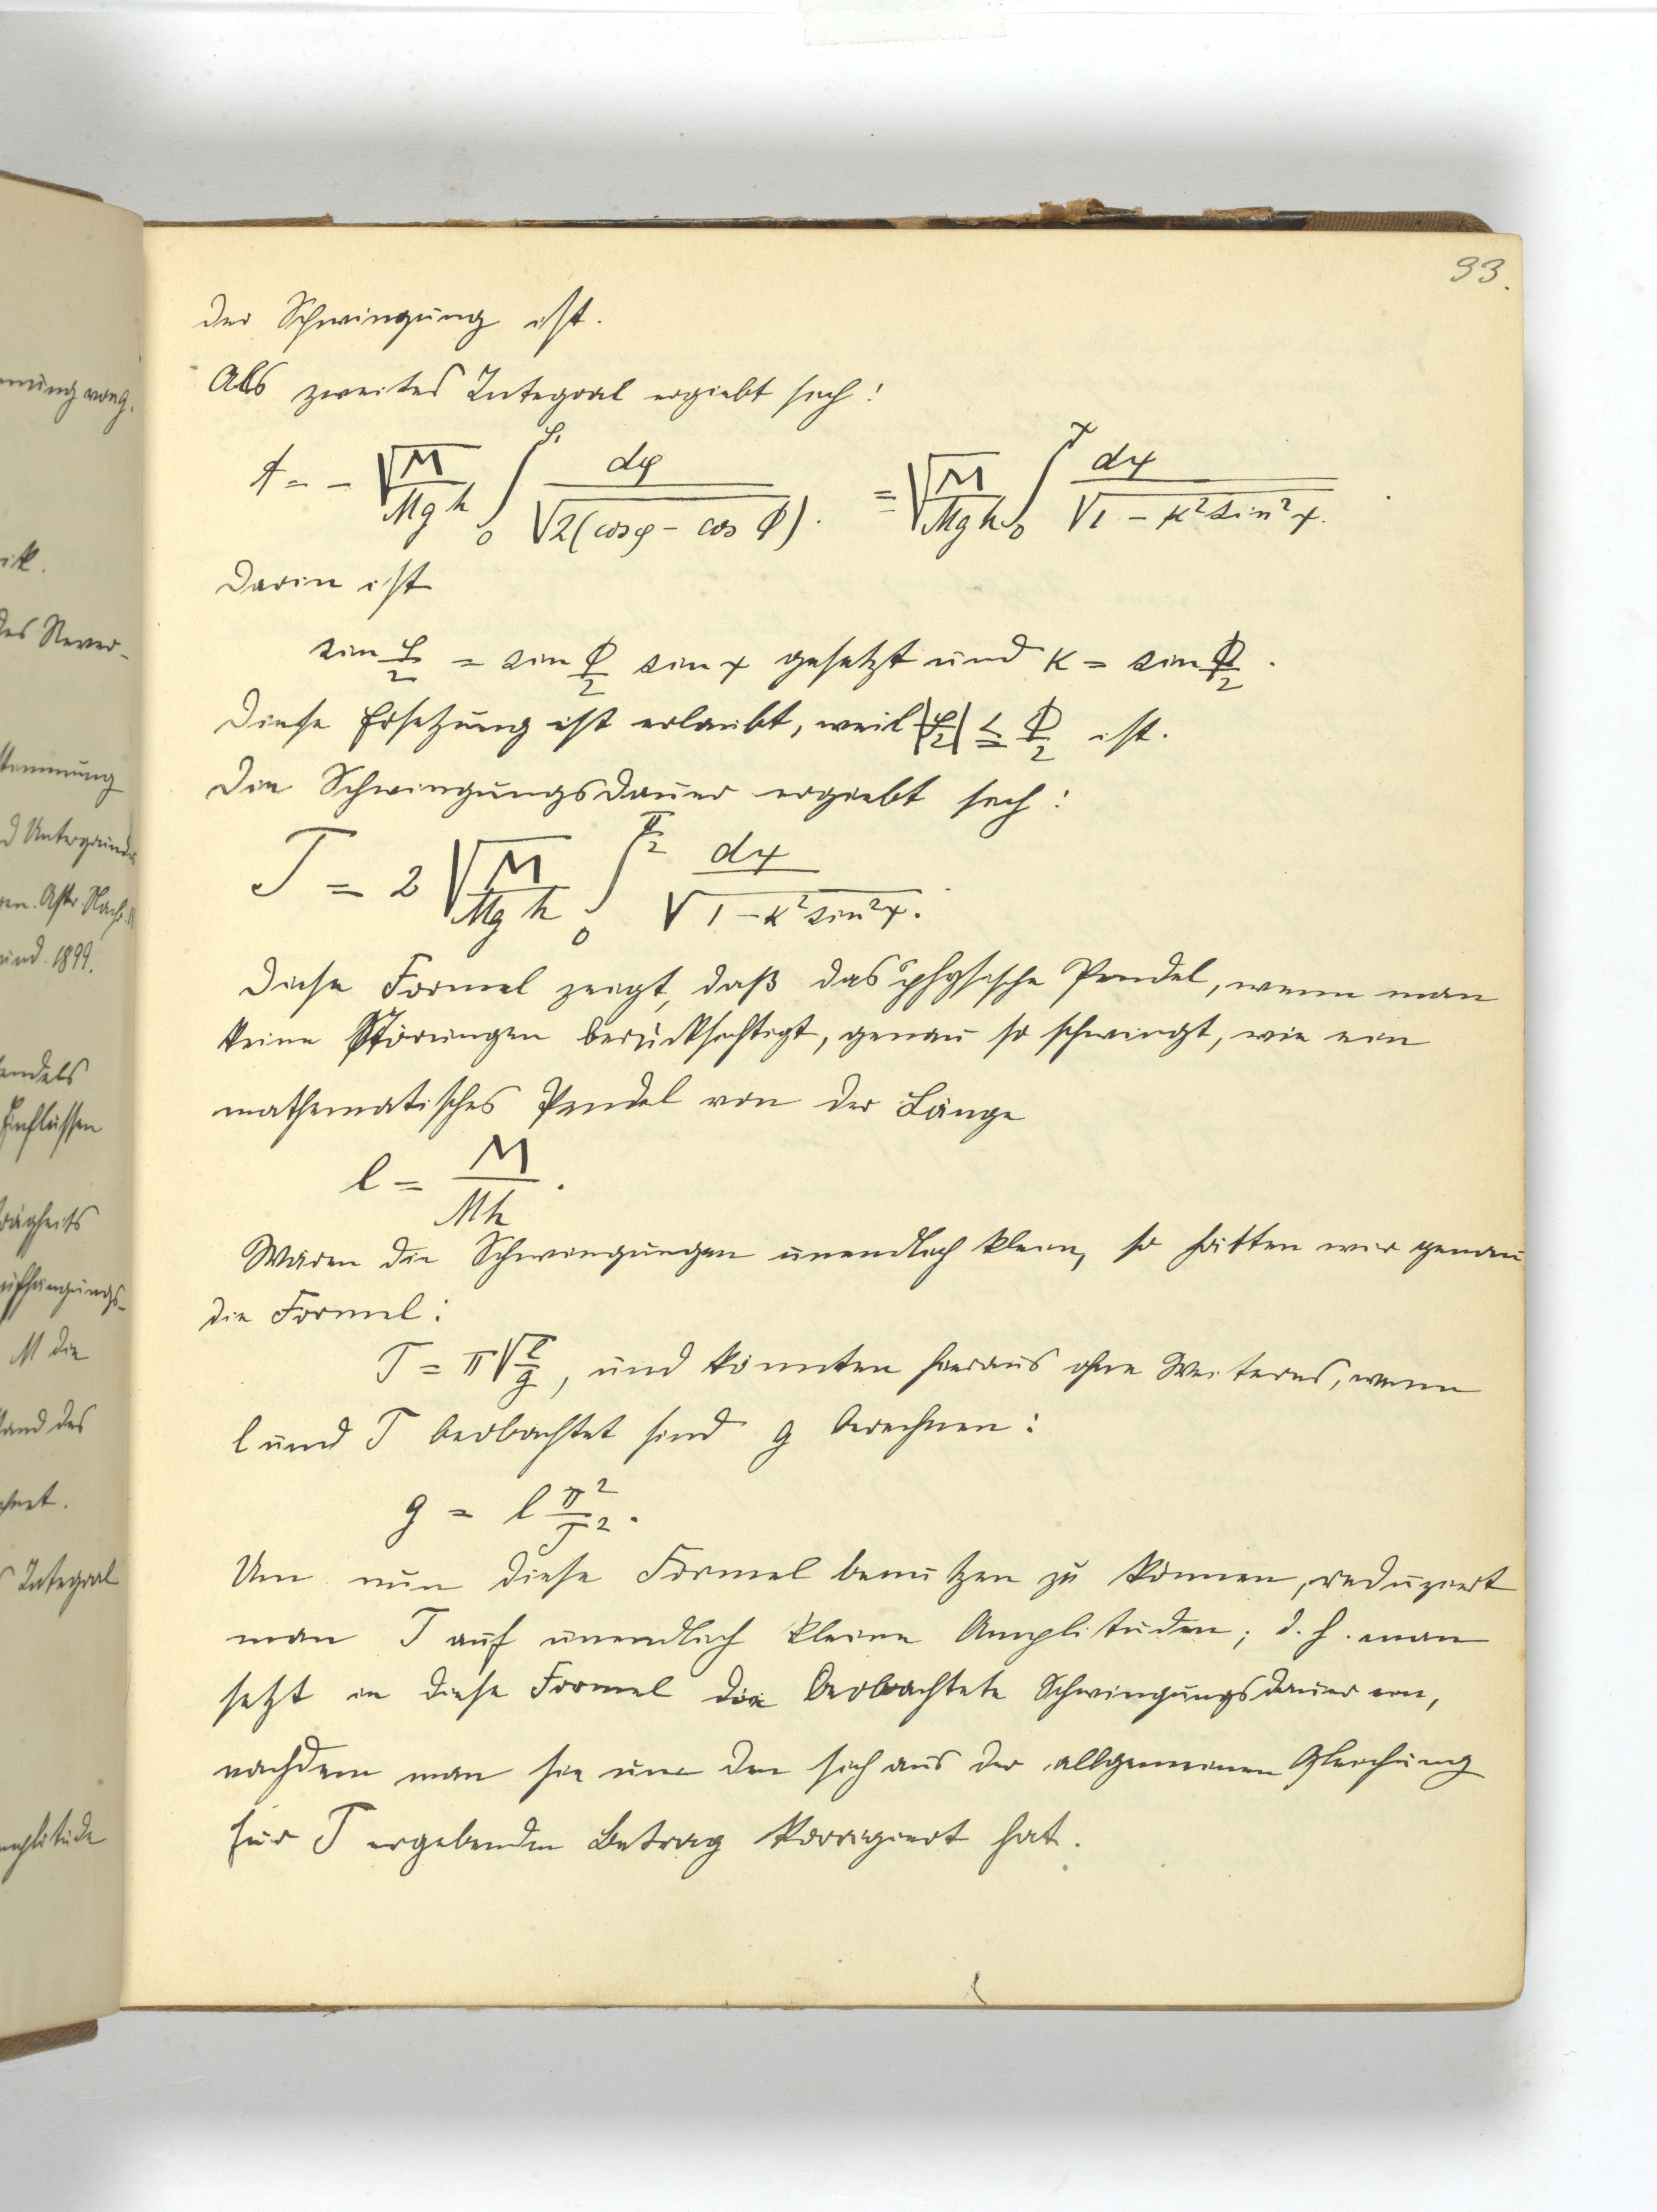 93.
der Schwingung ist.
Als zweites Integral ergiebt sich:
t = - √(M/Mgh) ∫₀^φ dφ/√(2(cos φ - cos Φ)). = √(M/Mgh) ∫₀^ψ dψ/√(1 - κ² sin² ψ).
Darin ist
sin φ/2 = sin Φ/2 sin ψ gesetzt und κ = sin Φ/2.
Diese Ersetzung ist erlaubt, weil |φ/2| ≦ Φ/2 ist.
Die Schwingungsdauer ergiebt sich:
T = 2 √(M/Mgh) ∫₀^(π/2) dψ/√(1 - κ² sin² ψ).
Diese Formel zeigt, daß das physische Pendel, wenn man
keine Störungen berücksichtigt, genau so schwingt, wie ein
mathematisches Pendel von der Länge
l = M/Mh.
Wären die Schwingungen unendlich klein, so hätten wir genau
die Formel:
T = π √(l/g), und könnten hieraus ohne Weiteres, wenn
l und T beobachtet sind g berechnen:
g = l π²/T².
Um nun diese Formel benutzen zu können, reduziert
man T auf unendlich kleine Amplituden; d. h. man
setzt in diese Formel die beobachtete Schwingungsdauer ein,
nachdem man sie um den sich aus der allgemeinen Gleichung
für T ergebenden Betrag korrigiert hat.